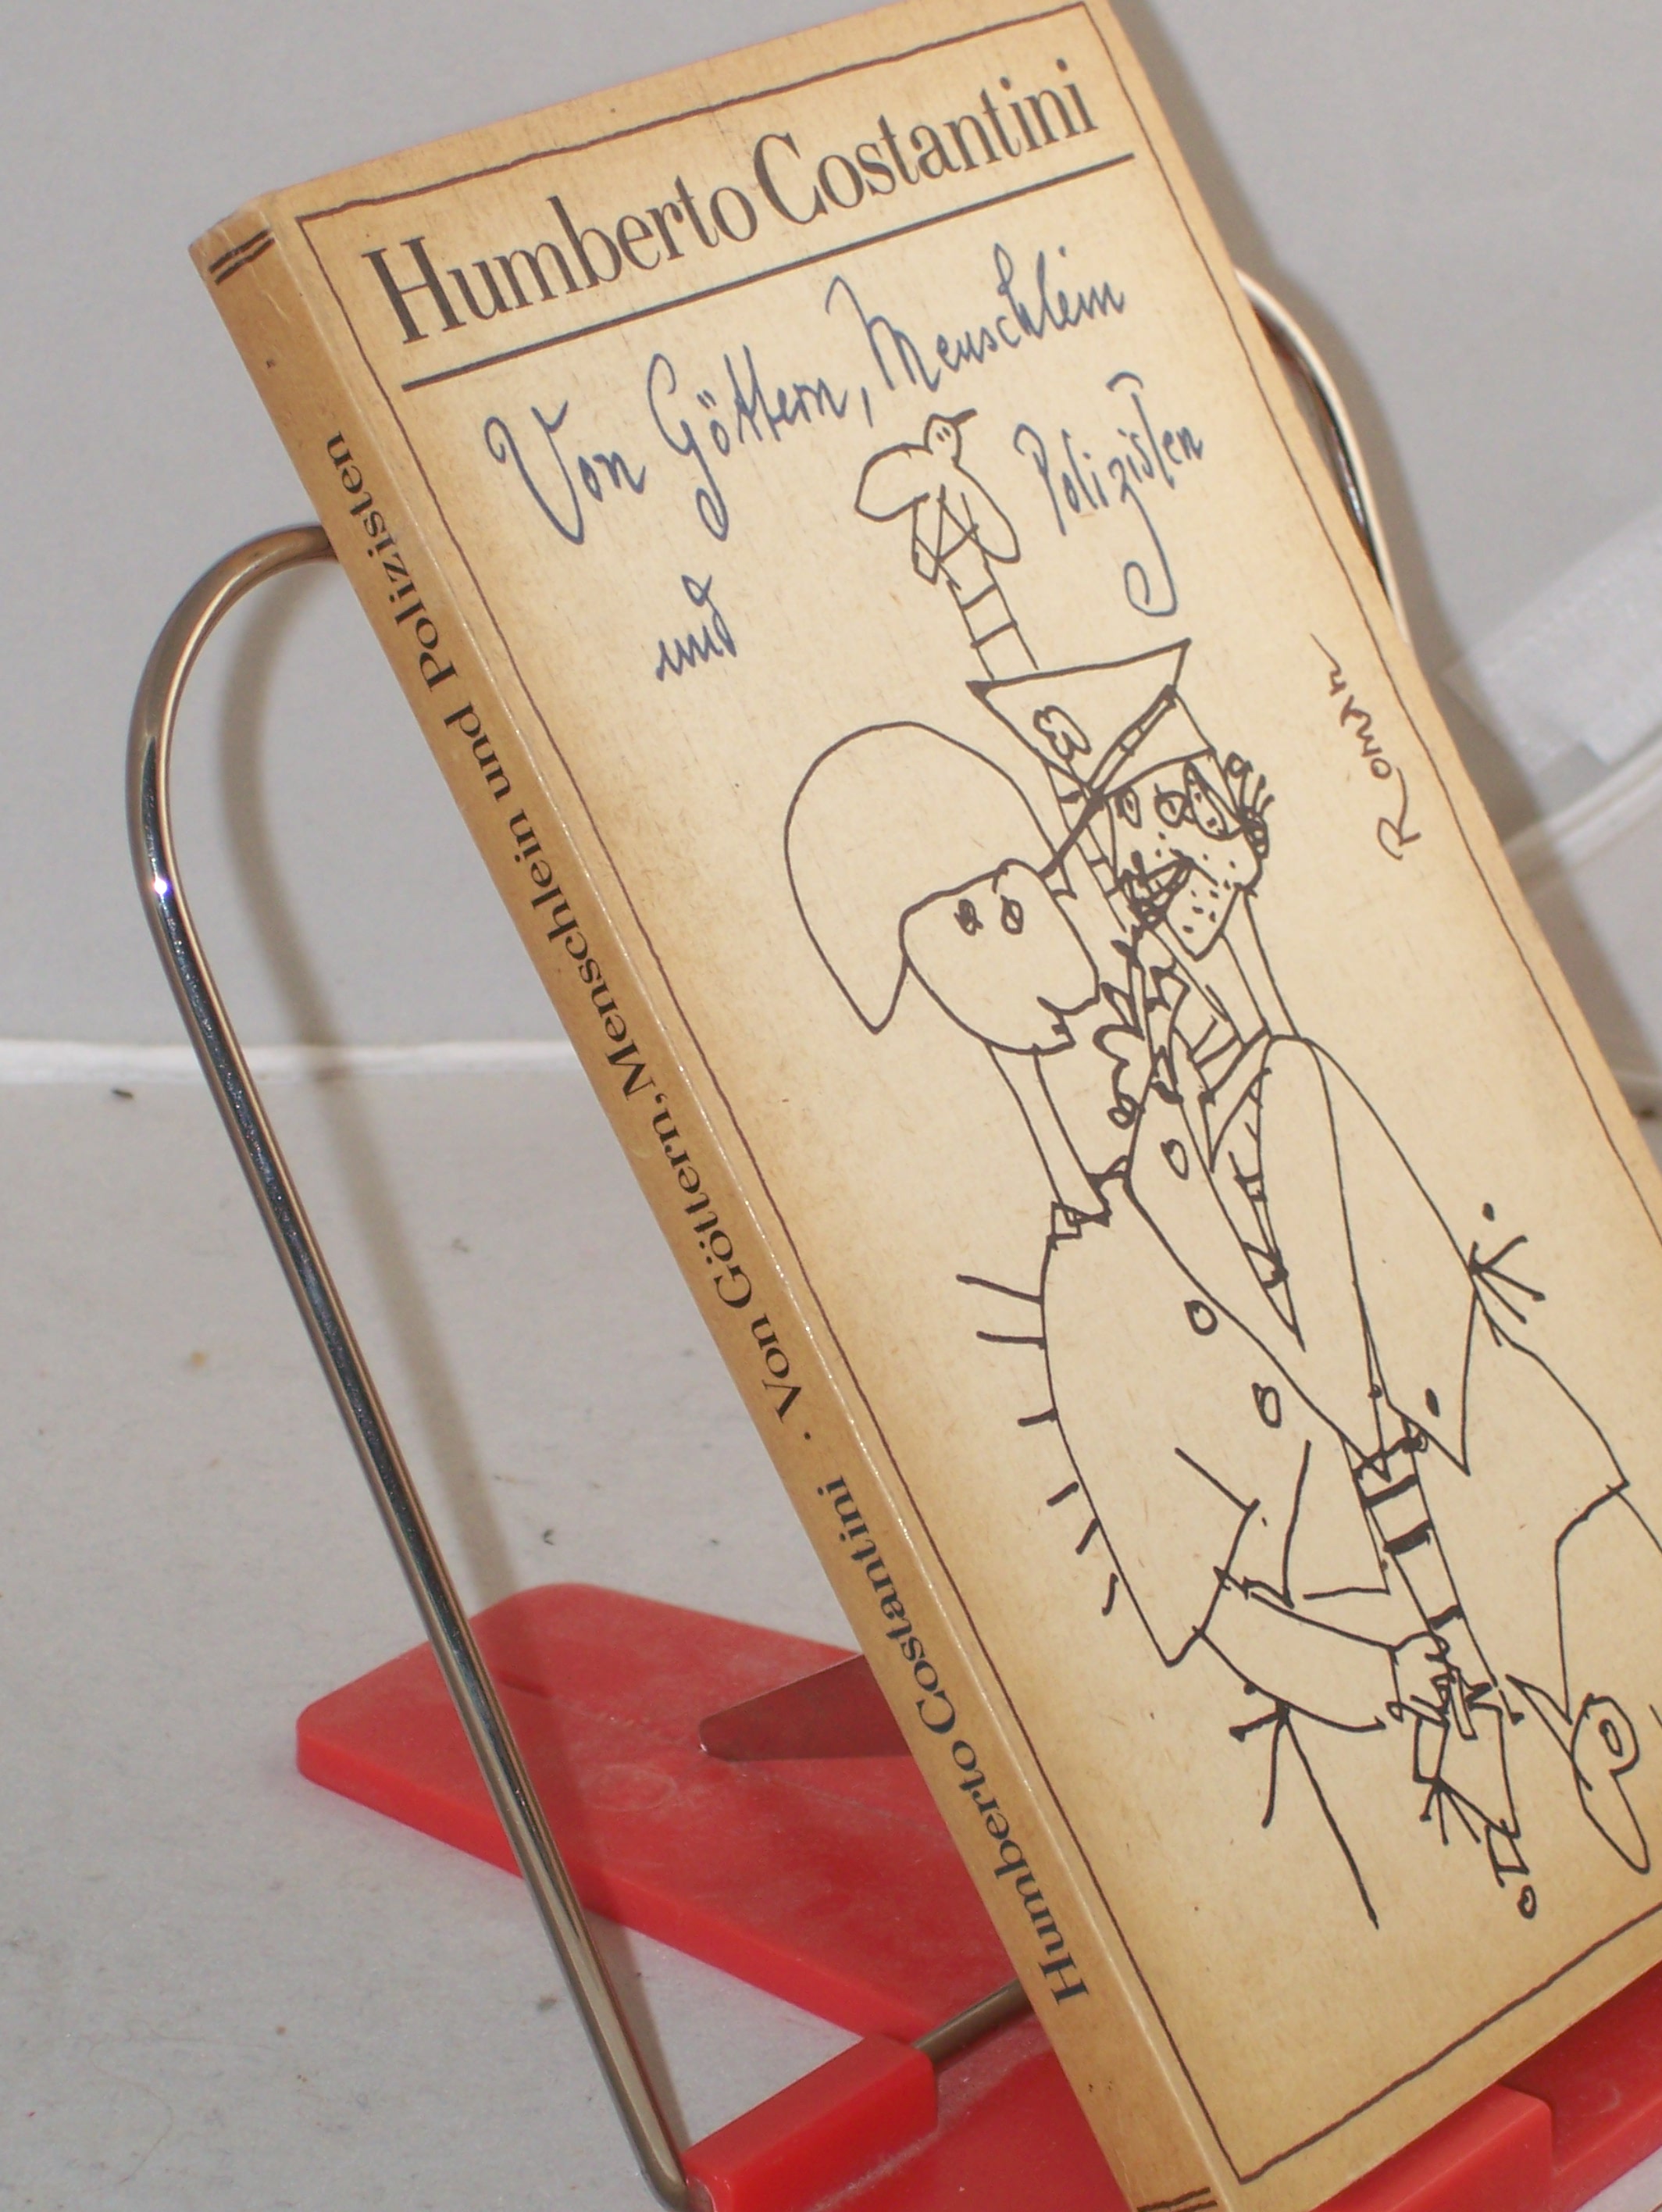 Humberto Costantini
Von Göttern, Menschlein
und Polizisten
Roman
Humberto Costantini · Von Göttern, Menschlein und Polizisten